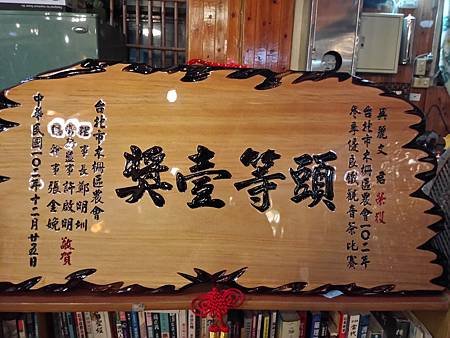 吳麗文 君 榮獲
台北市木柵區農會一〇二年
冬季優良鐵觀音茶比賽
頭等壹獎
台北市木柵區農會
理事長鄭明圳
常務監事許啟明
總幹事張金婉
敬賀
中華民國一〇二年十二月廿五日